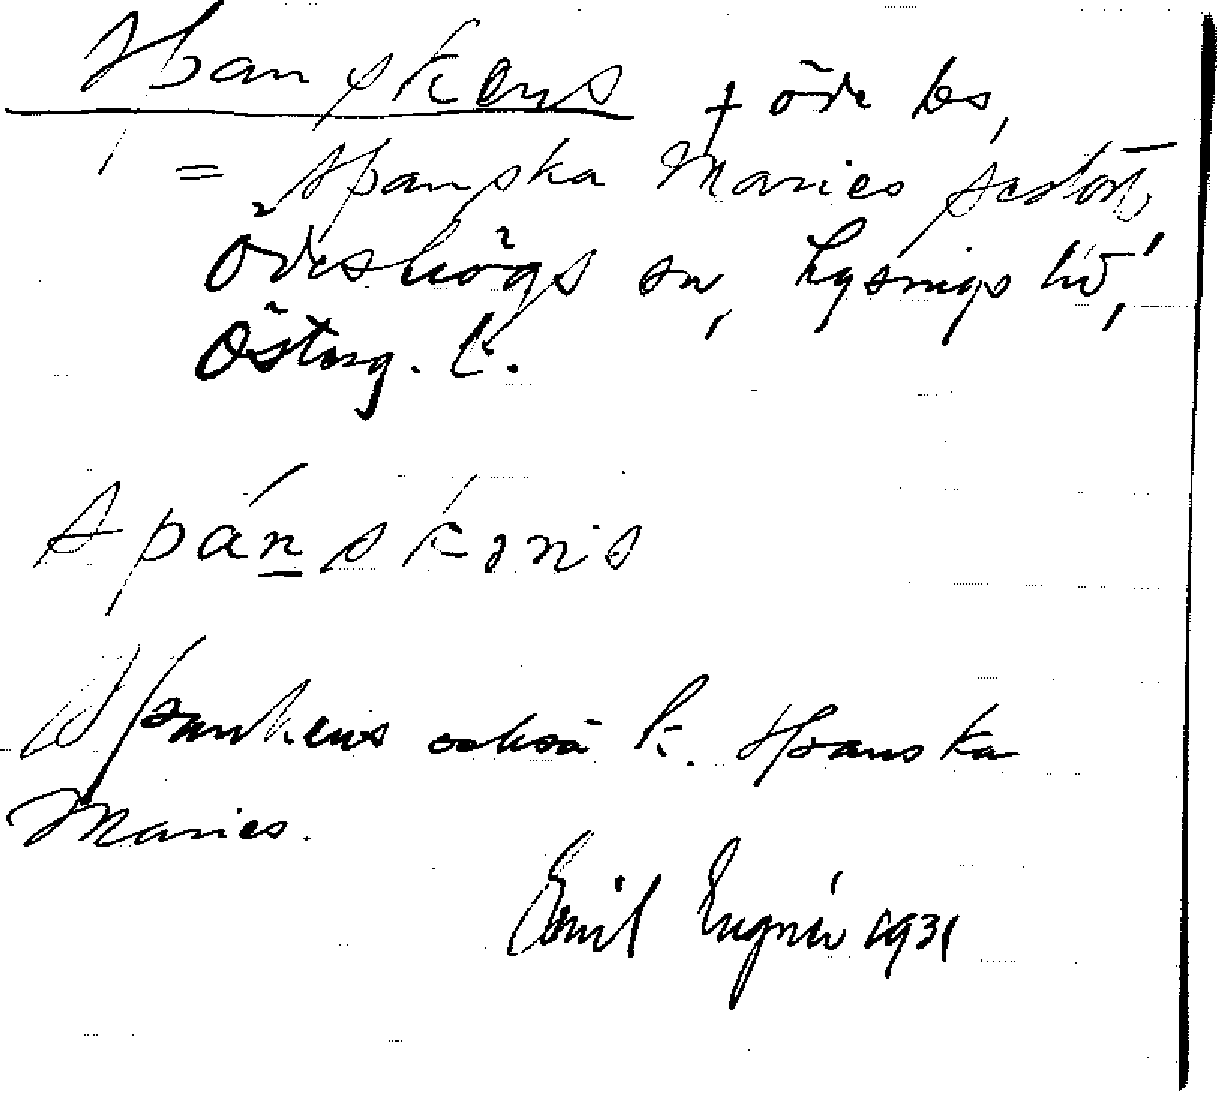 Spanskens † öde bs,
= Spanska Maries
Ödeshögs sn, Lysings hd,
Österg. l.
spánskəns
Spanskens också k. Spanska
Maries.
Emil 1931